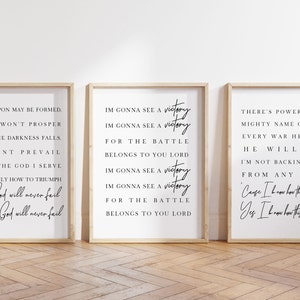 PON MAY BE FORMED,
WON'T PROSPER
E DARKNESS FALLS,
NT PREVAIL
THE GOD I SERVE
LY HOW TO TRIUMPH
God will never fail
God will never fail
IM GONNA SEE A victory
IM GONNA SEE A victory
FOR THE BATTLE
BELONGS TO YOU LORD
IM GONNA SEE A victory
IM GONNA SEE A victory
FOR THE BATTLE
BELONGS TO YOU LORD
THERE'S POWER
MIGHTY NAME O
EVERY WAR HE
HE WILL
I'M NOT BACKIN
FROM ANY
'Cause I know how th
Yes I know how th